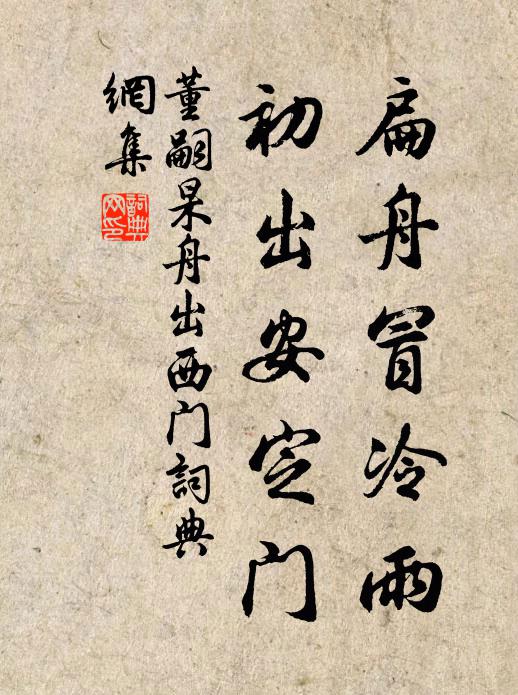 扁舟冒冷雨
初出安定门
董嗣杲舟出西门詞典
網集
詞典
网印